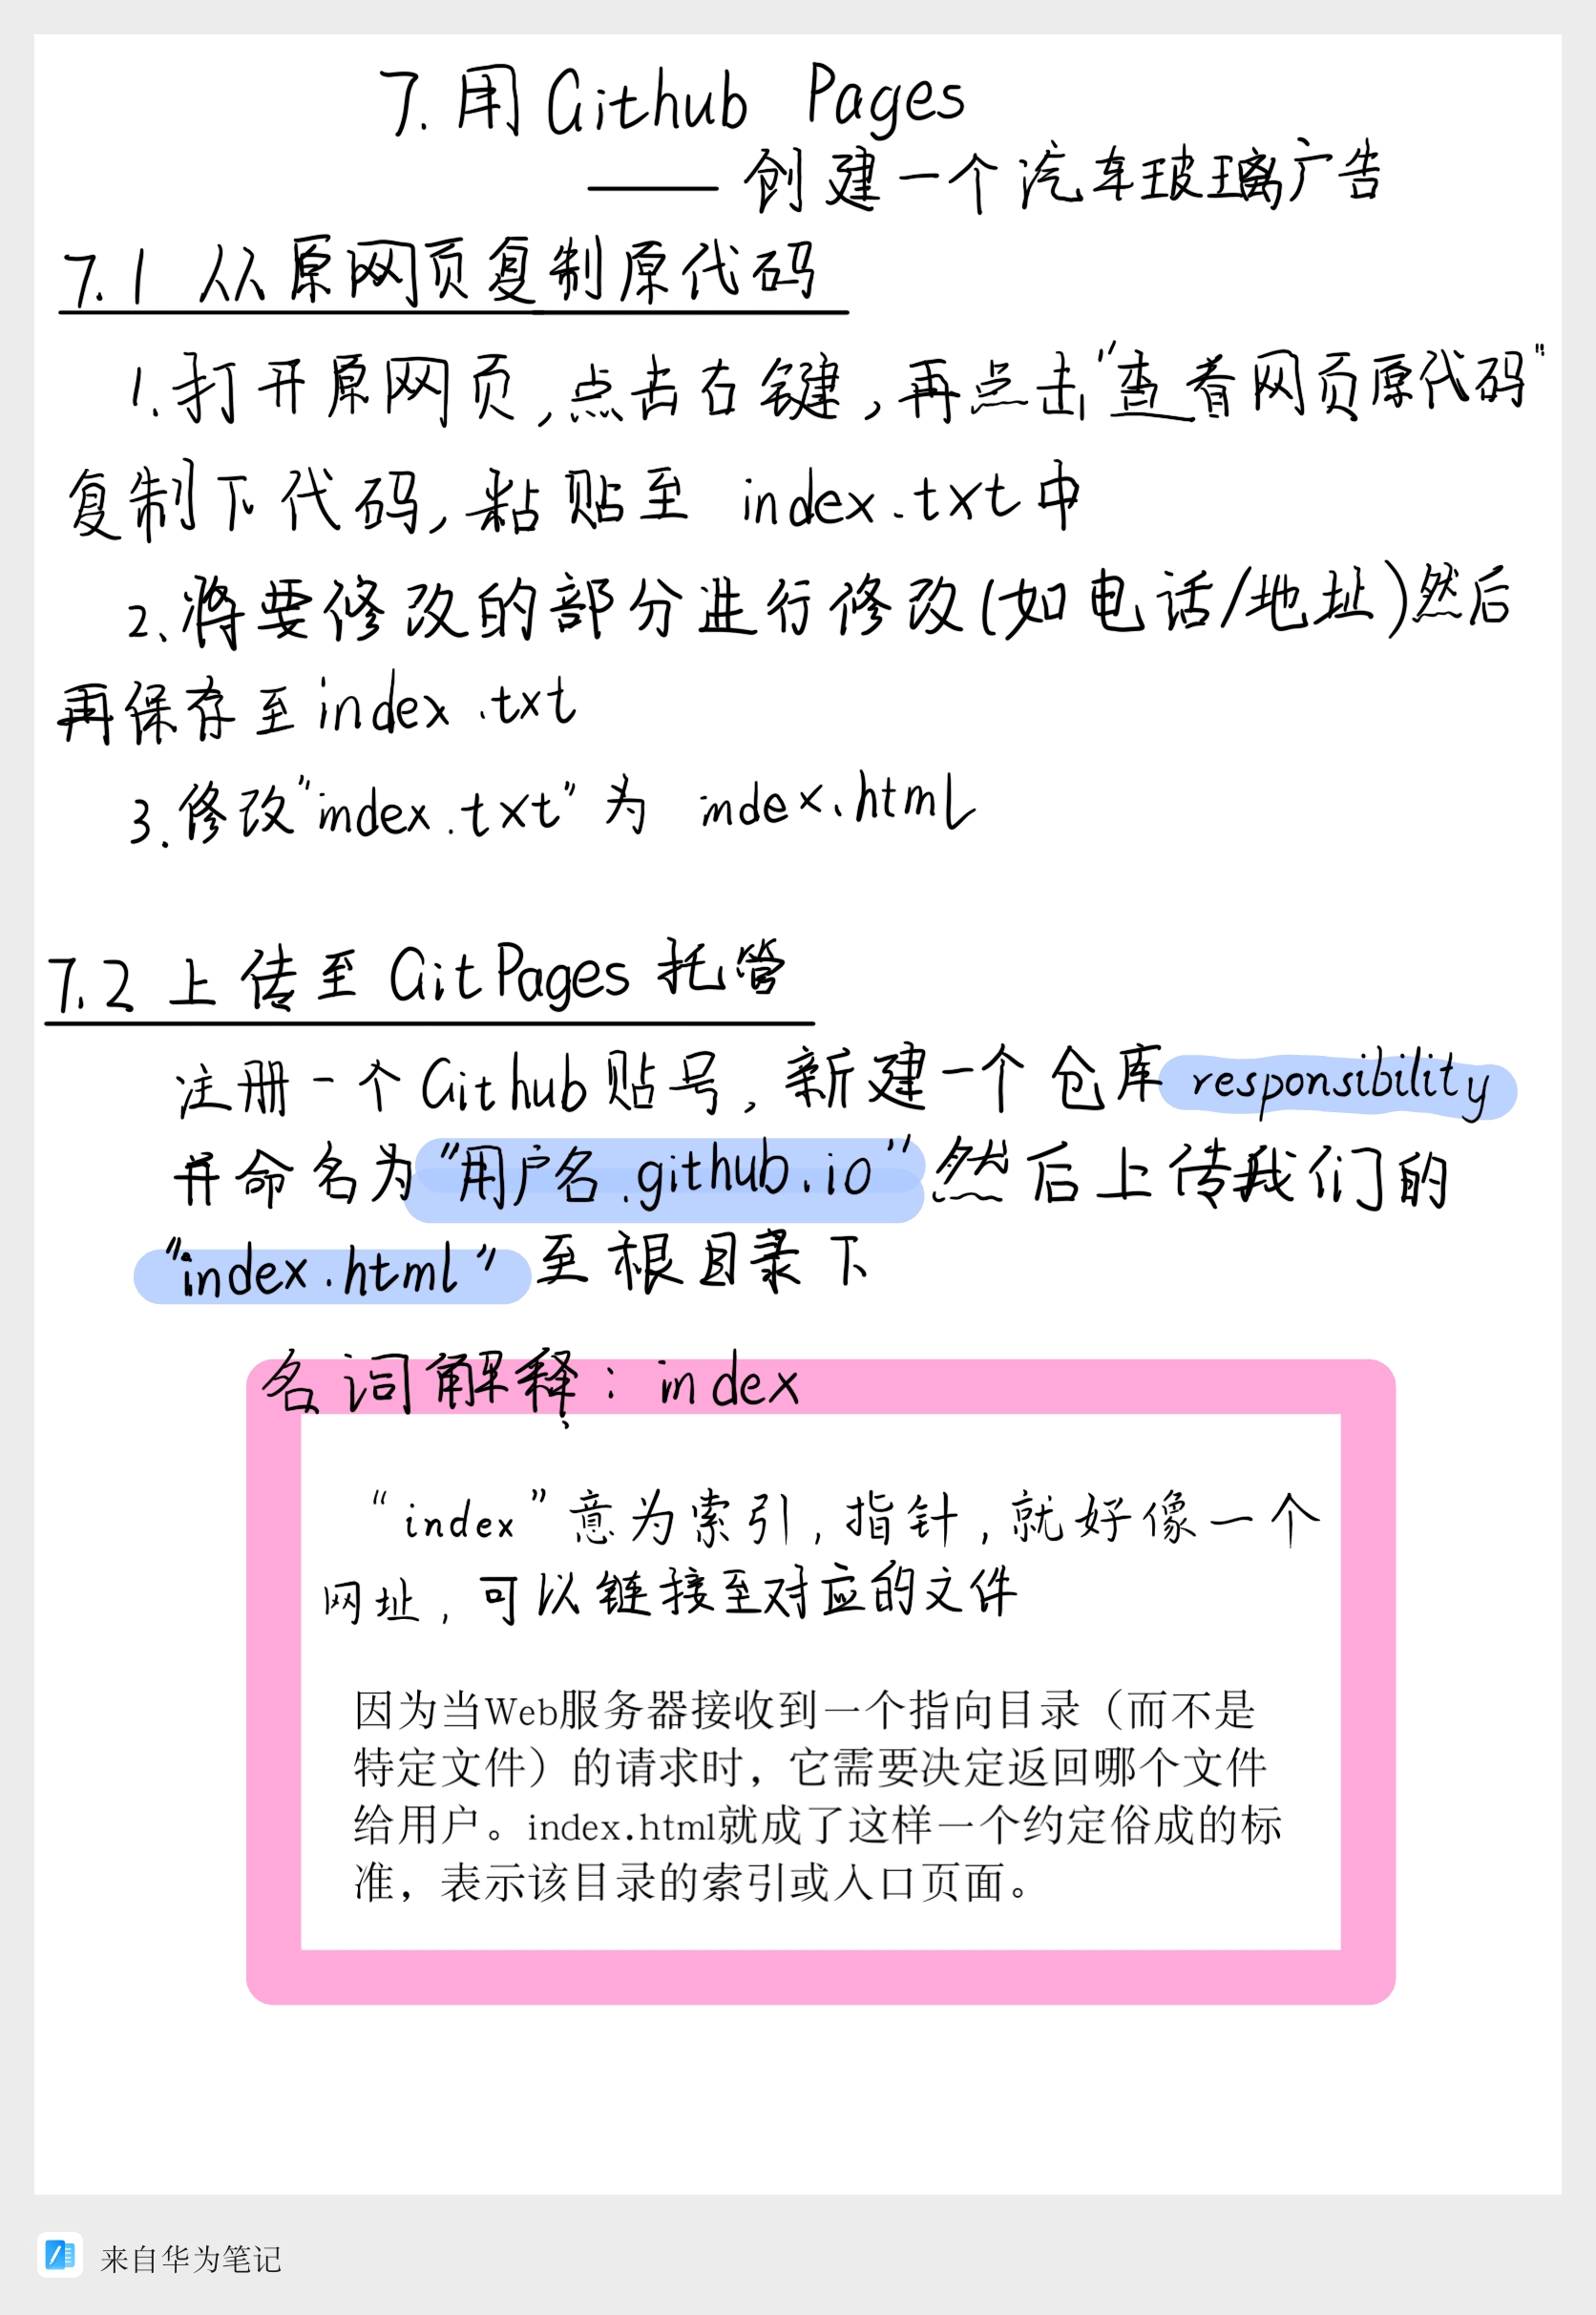 7. 用 Github Pages
—— 创建一个汽车玻璃广告
7.1 从原网页复制原代码
1. 打开原网页,点击右键,再点击"查看网页原代码"
复制下代码,粘贴至 index.txt中
2、将要修改的部分进行修改(如电话/地址)然后
再保存至index.txt
3.修改"index.txt"为 index.html
7.2 上传至 GitPages 托管
注册一个Github贴号,新建一个仓库 responsibility
并命名为"用户名.github.io"然后上传我们的
"index.html"至根目录下
名词解释: index
“index”意为索引,指针,就好像一个
网址,可以链接至对应的文件
因为当Web服务器接收到一个指向目录（而不是
特定文件）的请求时，它需要决定返回哪个文件
给用户。index.html就成了这样一个约定俗成的标
准，表示该目录的索引或入口页面。
来自华为笔记